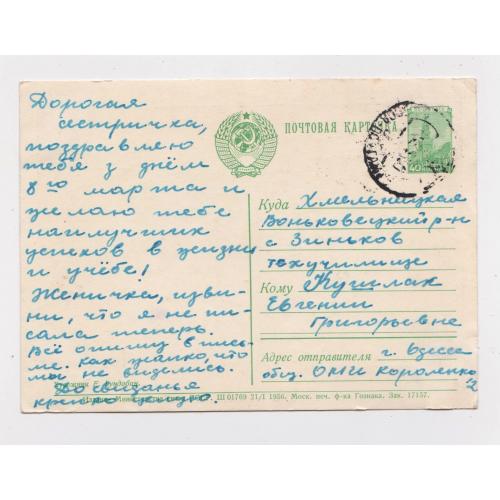 Дорогая
сестричка,
поздравляю
тебя з днём
8го марта и
желаю тебе
наилучших
успехов в жизни
и учёбе!
Женичка, изви-
ни, что я не пи-
сала теперь.
Всё опишу в пись-
ме. Как жалко, что
мы не виделись.
До свиданья
крепко целую.
ПОЧТОВАЯ КАРТОЧКА
40
Куда Хмельницкая
Воньковецкий р-н
с Зиньков
техучилище
Кому Кушлак
Евгении
Григорьевне
Адрес отправителя г. Одесса
общ. ОМИ Короленко 12
Художник Е. Гундобин
Ш 01769 21/I 1956. Моск. печ. ф-ка Гознака. Зак. 17157.